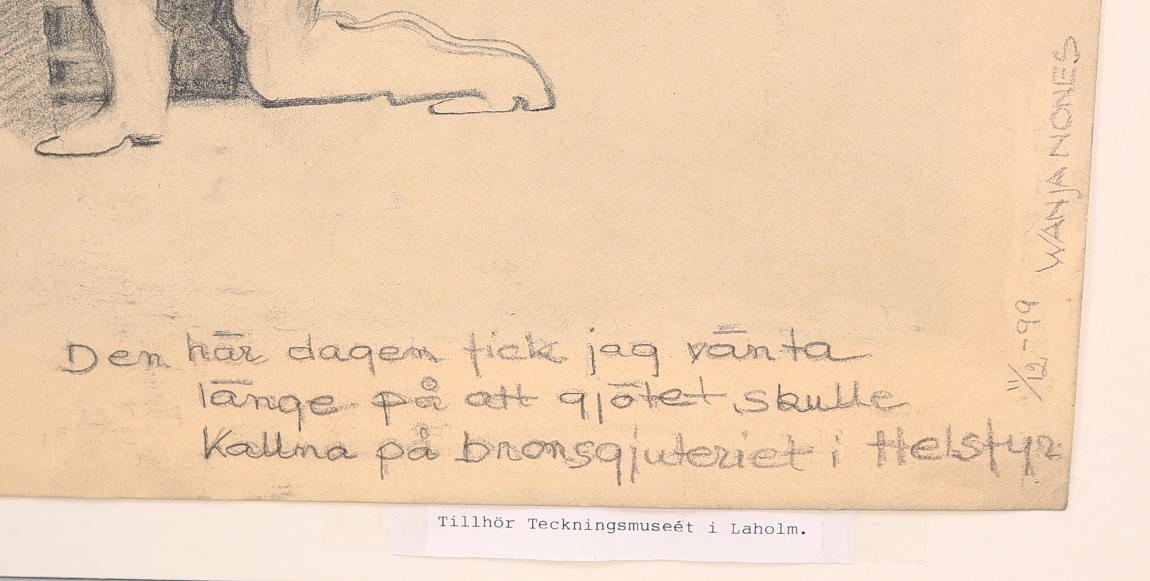 Den här dagen fick jag vänta
länge på att gjötet skulle
Kallna på bronsgjuteriet i Helstyr
11/12-99 WANJA NONES
Tillhör Teckningsmuseét i Laholm.